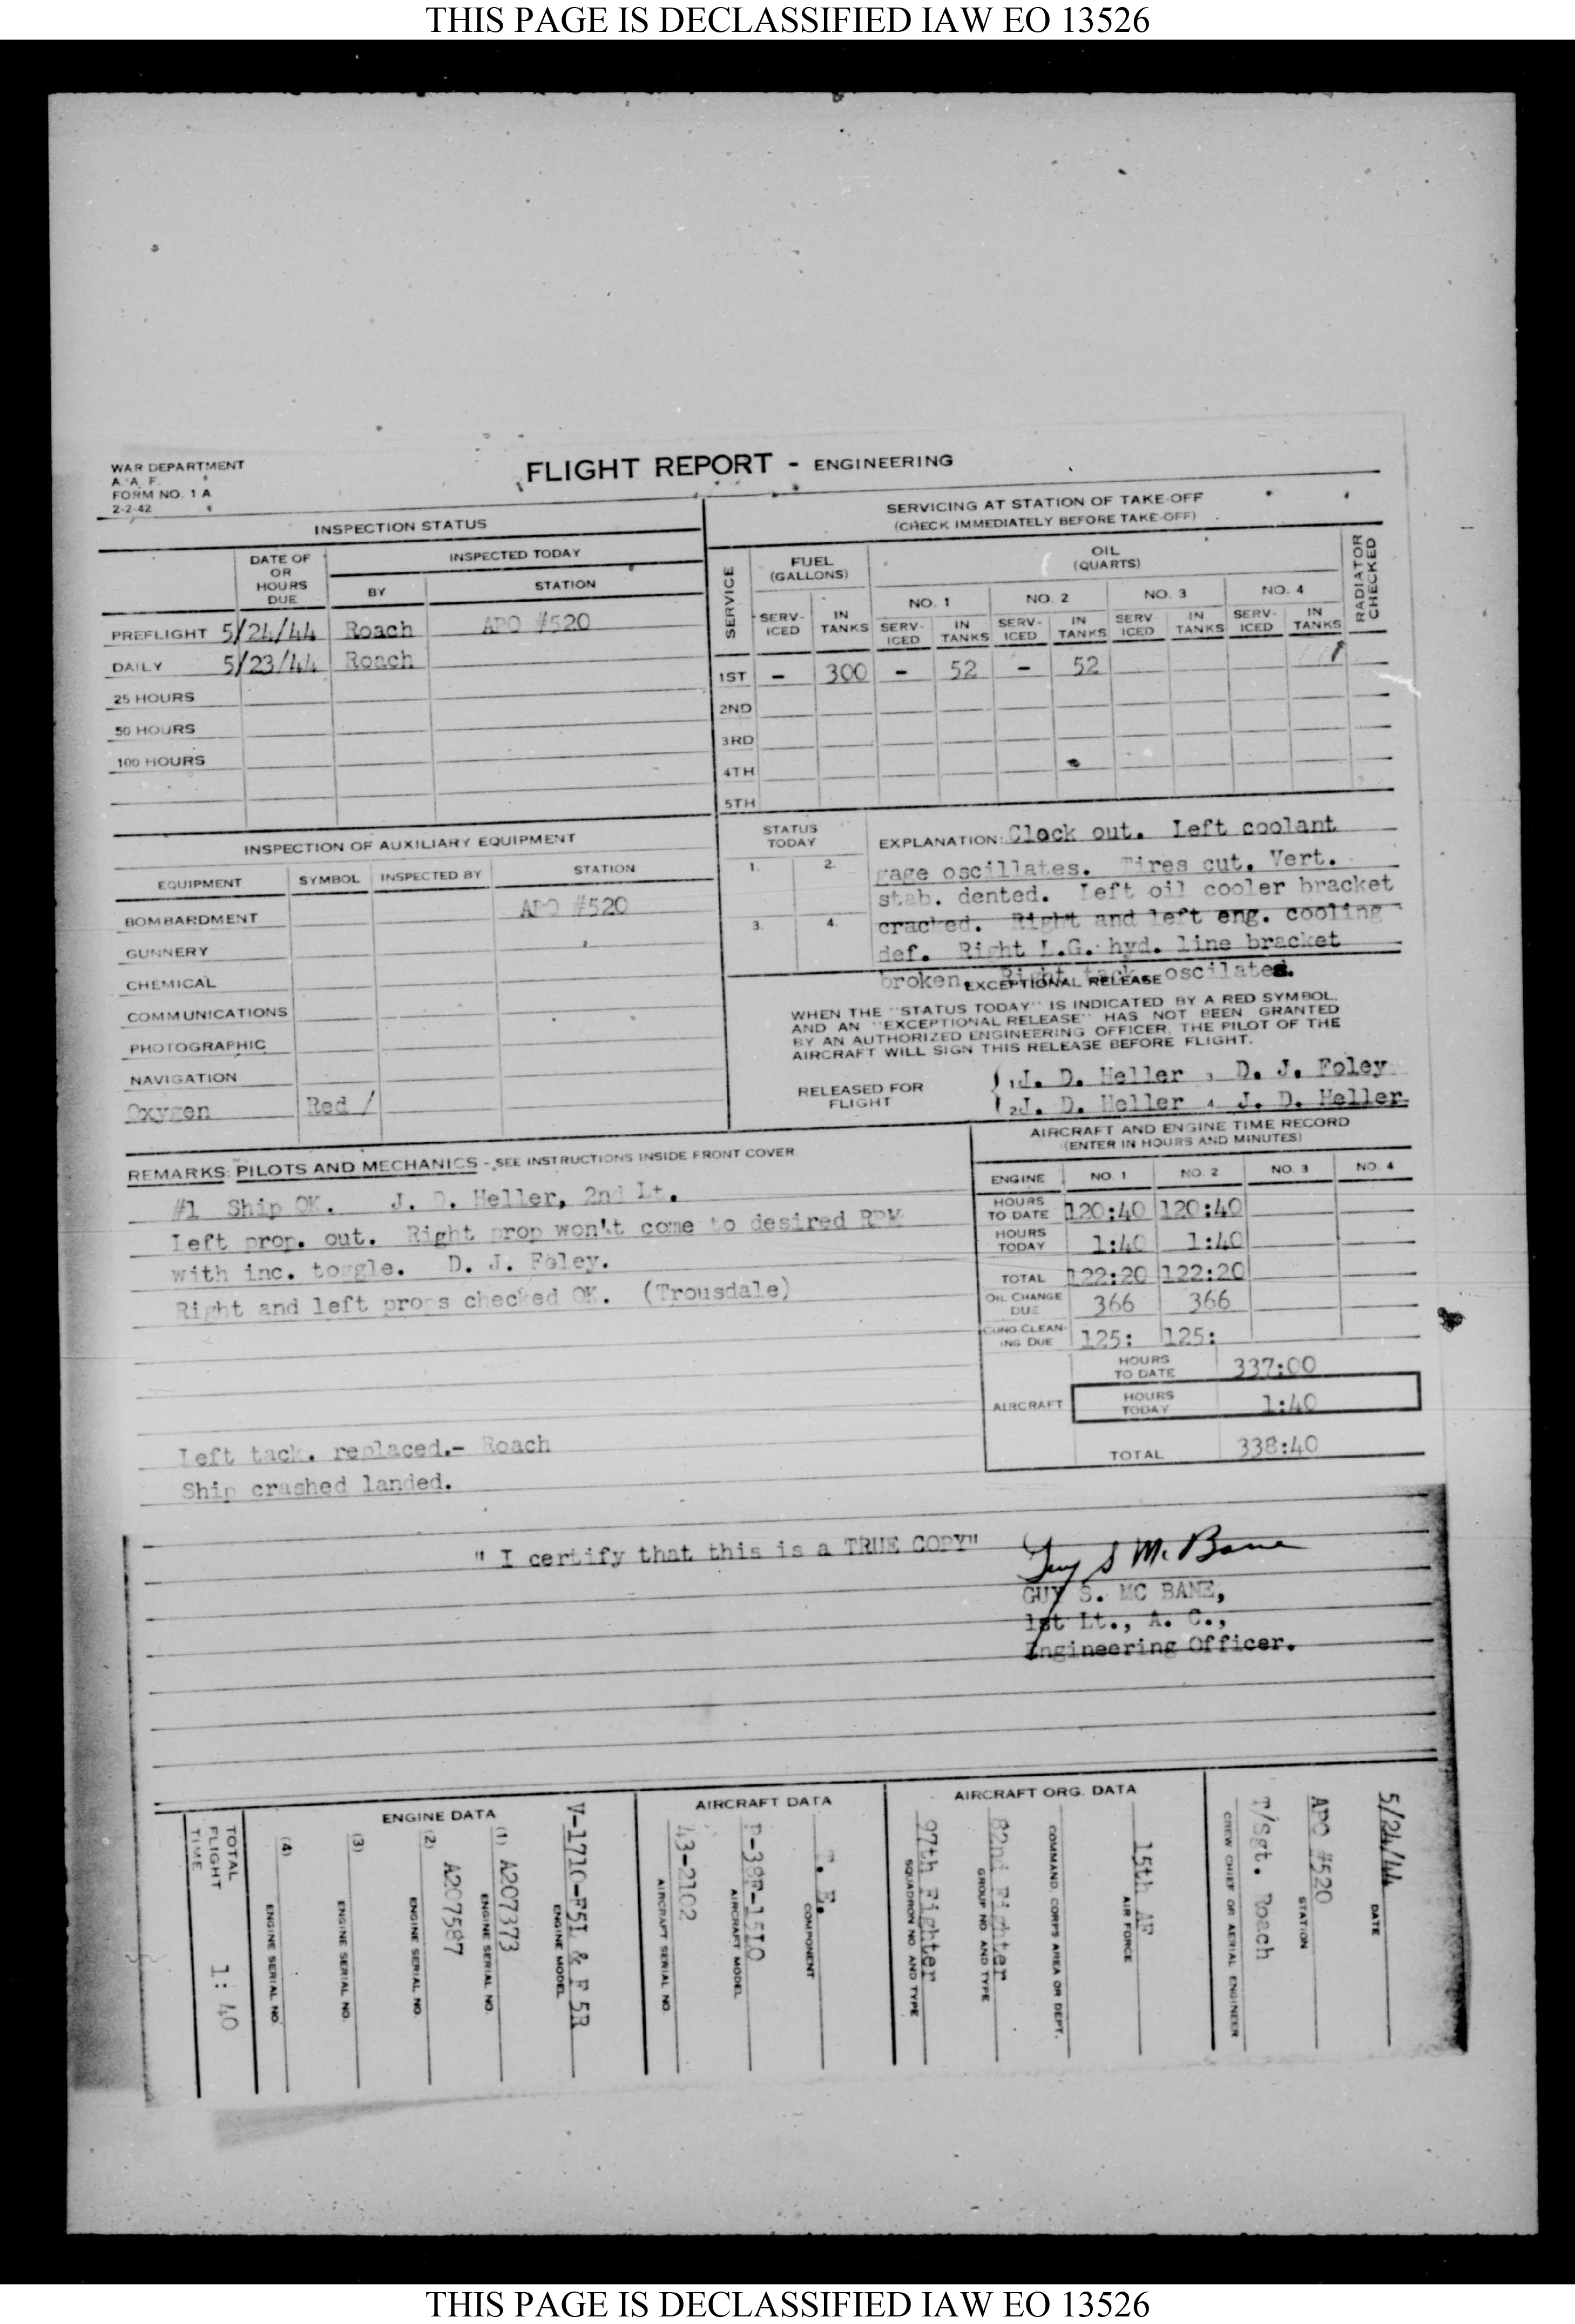 THIS PAGE IS DECLASSIFIED IAW EO 13526
WAR DEPARTMENT
A. A. F.
FORM NO. 1 A
2-2-42
FLIGHT REPORT - ENGINEERING
INSPECTION STATUS
DATE OF OR HOURS DUE
INSPECTED TODAY
BY
STATION
PREFLIGHT 5/24/44 Roach APO #520
DAILY 5/23/44 Roach
25 HOURS
50 HOURS
100 HOURS
SERVICING AT STATION OF TAKE-OFF
(CHECK IMMEDIATELY BEFORE TAKE-OFF)
SERVICE
FUEL (GALLONS)
OIL (QUARTS)
RADIATOR CHECKED
NO. 1 NO. 2 NO. 3 NO. 4
SERV-ICED IN TANKS SERV-ICED IN TANKS SERV-ICED IN TANKS SERV-ICED IN TANKS SERV-ICED IN TANKS
1ST - 300 - 52 - 52
2ND
3RD
4TH
5TH
INSPECTION OF AUXILIARY EQUIPMENT
EQUIPMENT SYMBOL INSPECTED BY STATION
BOMBARDMENT APO #520
GUNNERY
CHEMICAL
COMMUNICATIONS
PHOTOGRAPHIC
NAVIGATION
Oxygen Red /
STATUS TODAY
1. 2.
3. 4.
EXPLANATION: Clock out. Left coolant
gage oscillates. Tires cut. Vert.
stab. dented. Left oil cooler bracket
cracked. Right and left eng. cooling
def. Right L.G. hyd. line bracket
broken. Right tack. oscilates.
EXCEPTIONAL RELEASE
WHEN THE "STATUS TODAY" IS INDICATED BY A RED SYMBOL,
AND AN "EXCEPTIONAL RELEASE" HAS NOT BEEN GRANTED
BY AN AUTHORIZED ENGINEERING OFFICER, THE PILOT OF THE
AIRCRAFT WILL SIGN THIS RELEASE BEFORE FLIGHT.
RELEASED FOR FLIGHT
1. J. D. Heller 3 D. J. Foley
2 J. D. Heller 4 J. D. Heller
REMARKS: PILOTS AND MECHANICS - SEE INSTRUCTIONS INSIDE FRONT COVER
#1 Ship OK. J. D. Heller, 2nd Lt.
Left prop. out. Right prop won't come to desired RPM
with inc. toggle. D. J. Foley.
Right and left props checked OK. (Trousdale)
Left tack. replaced.- Roach
Ship crashed landed.
AIRCRAFT AND ENGINE TIME RECORD
(ENTER IN HOURS AND MINUTES)
ENGINE NO. 1 NO. 2 NO. 3 NO. 4
HOURS TO DATE 120:40 120:40
HOURS TODAY 1:40 1:40
TOTAL 122:20 122:20
OIL CHANGE DUE 366 366
CUNO CLEAN-ING DUE 125: 125:
AIRCRAFT
HOURS TO DATE 337:00
HOURS TODAY 1:40
TOTAL 338:40
" I certify that this is a TRUE COPY"
Guy S Mc Bane
GUY S. MC BANE,
1st Lt., A. C.,
Engineering Officer.
5/24/44
DATE
APO #520
STATION
T/Sgt. Roach
CREW CHIEF OR AERIAL ENGINEER
AIRCRAFT ORG. DATA
15th AF
AIR FORCE
COMMAND, CORPS AREA OR DEPT.
82nd Fighter
GROUP NO. AND TYPE
97th Fighter
SQUADRON NO. AND TYPE
AIRCRAFT DATA
COMPONENT
AIRCRAFT MODEL
43-2102
AIRCRAFT SERIAL NO.
ENGINE DATA
ENGINE MODEL
(1) A207373
ENGINE SERIAL NO.
(2) A207587
ENGINE SERIAL NO.
(3)
ENGINE SERIAL NO.
(4)
ENGINE SERIAL NO.
TOTAL FLIGHT TIME 1:40
THIS PAGE IS DECLASSIFIED IAW EO 13526